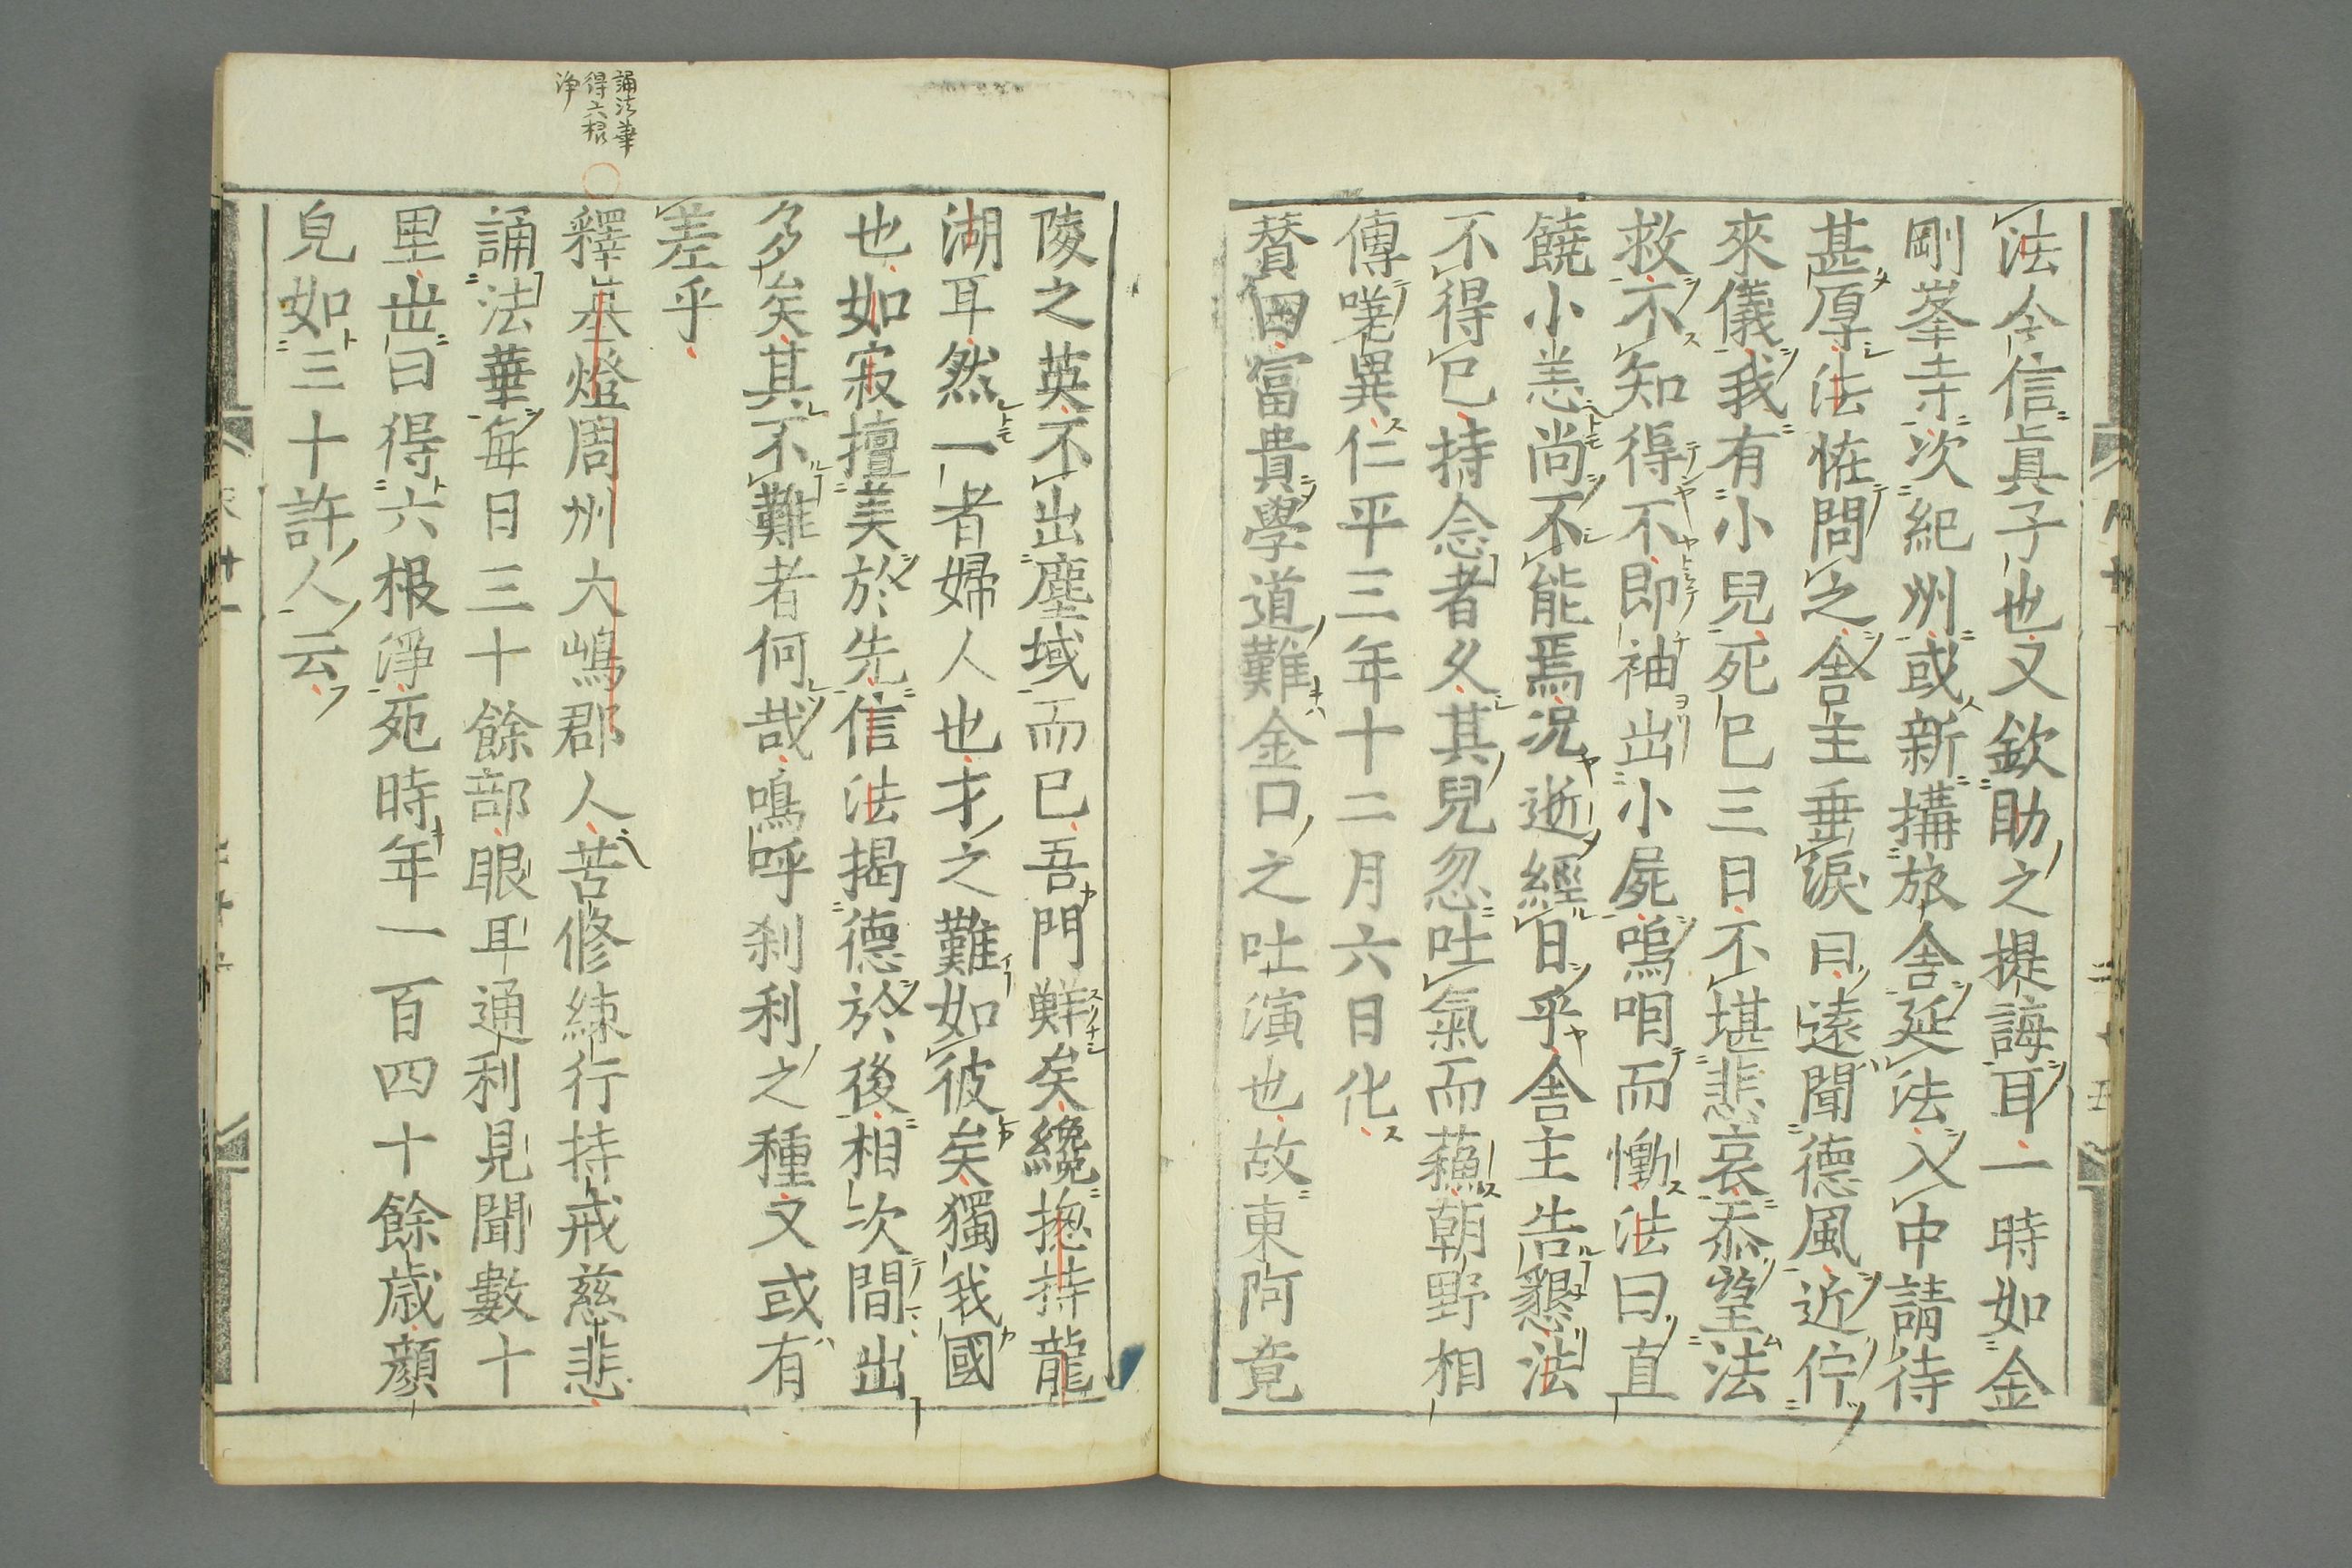 法令信眞子也又欽助之提誨耳一時如金
剛峯寺次紀州或新搆旅舍延法入中請待
甚厚法恠問之舍主垂淚曰遠聞德風近佇
來儀我有小兒死已三日不堪悲哀忝望法
救不知得不即袖出小屍嗚咽而慟法曰直
饒小恙尚不能焉况逝經日乎舍主告懇法
不得已持念者久其兒忽吐氣而蘓朝野相
傳嘆異仁平三年十二月六日化
賛曰富貴學道難金口之吐演也故東阿竟
陵之英不出塵域而已吾門鮮矣纔揔持龍
湖耳然一者婦人也才之難如彼矣獨我國
也如寂擅美於先信法揭德於後相次間出
多矣其不難者何哉嗚呼刹利之種又或有
差乎
誦法華
得六根
淨
釋基燈周州大嶋郡人苦修練行持戒慈悲
誦法華每日三十餘部眼耳通利見聞數十
里世曰得六根淨死時年一百四十餘歲顏
皃如三十許人云